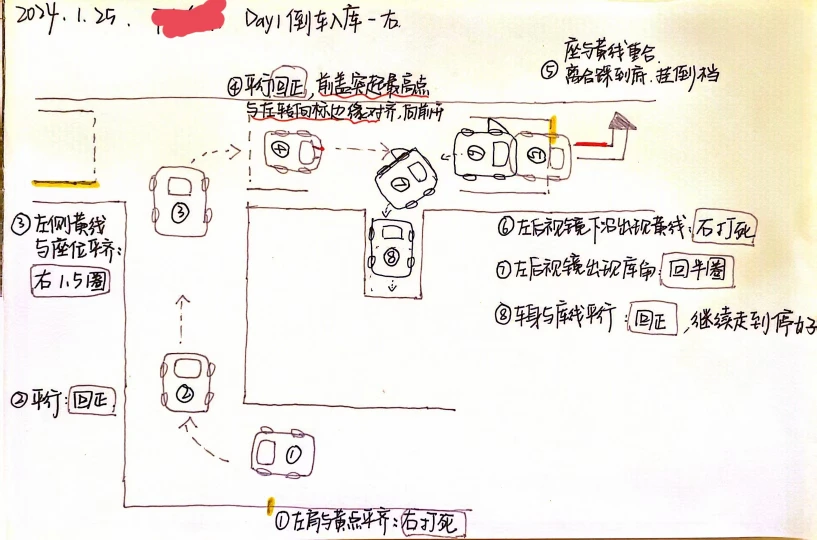 2024.1.25.
Day1 倒车入库-右
⑤座与黄线重合.
离合踩到底.挂倒档
④平行回正,前盖突起最高点
与左转向标边缘对齐,向前开
③左侧黄线
与座位平齐:
右1.5圈
④
⑦
⑥
⑤
③
⑧
⑥左后视镜下沿出现黄线:右打死
⑦左后视镜出现库角:回半圈
⑧车身与库线平行:回正,继续走到停好
②平行:回正
②
①
①左肩与黄点平齐:右打死